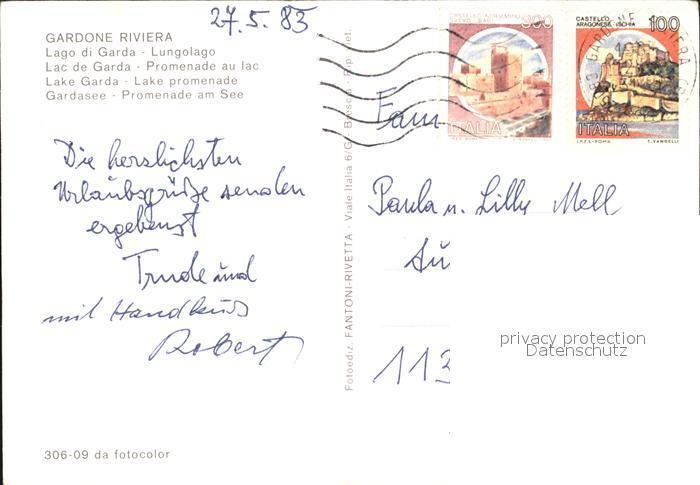 27.5.83
GARDONE RIVIERA
Lago di Garda - Lungolago
Lac de Garda - Promenade au lac
Lake Garda - Lake promenade
Gardasee - Promenade am See
Die herzlichsten
Urlaubsgrüße senden
ergebenst
Trude und
mit Handkuss
Robert
306-09 da fotocolor
Fotoediz. FANTONI-RIVETTA - Viale Italia 6/G - Brescia - Rip. viet.
CASTELLO
ARAGONESE - ISCHIA
100
ITALIA
I.P.Z.S.-ROMA
E. VANGELLI
300
ITALIA
GARDONE RIVIERA
Fam
Paula u. Lilly Mell
Au
113
privacy protection
Datenschutz